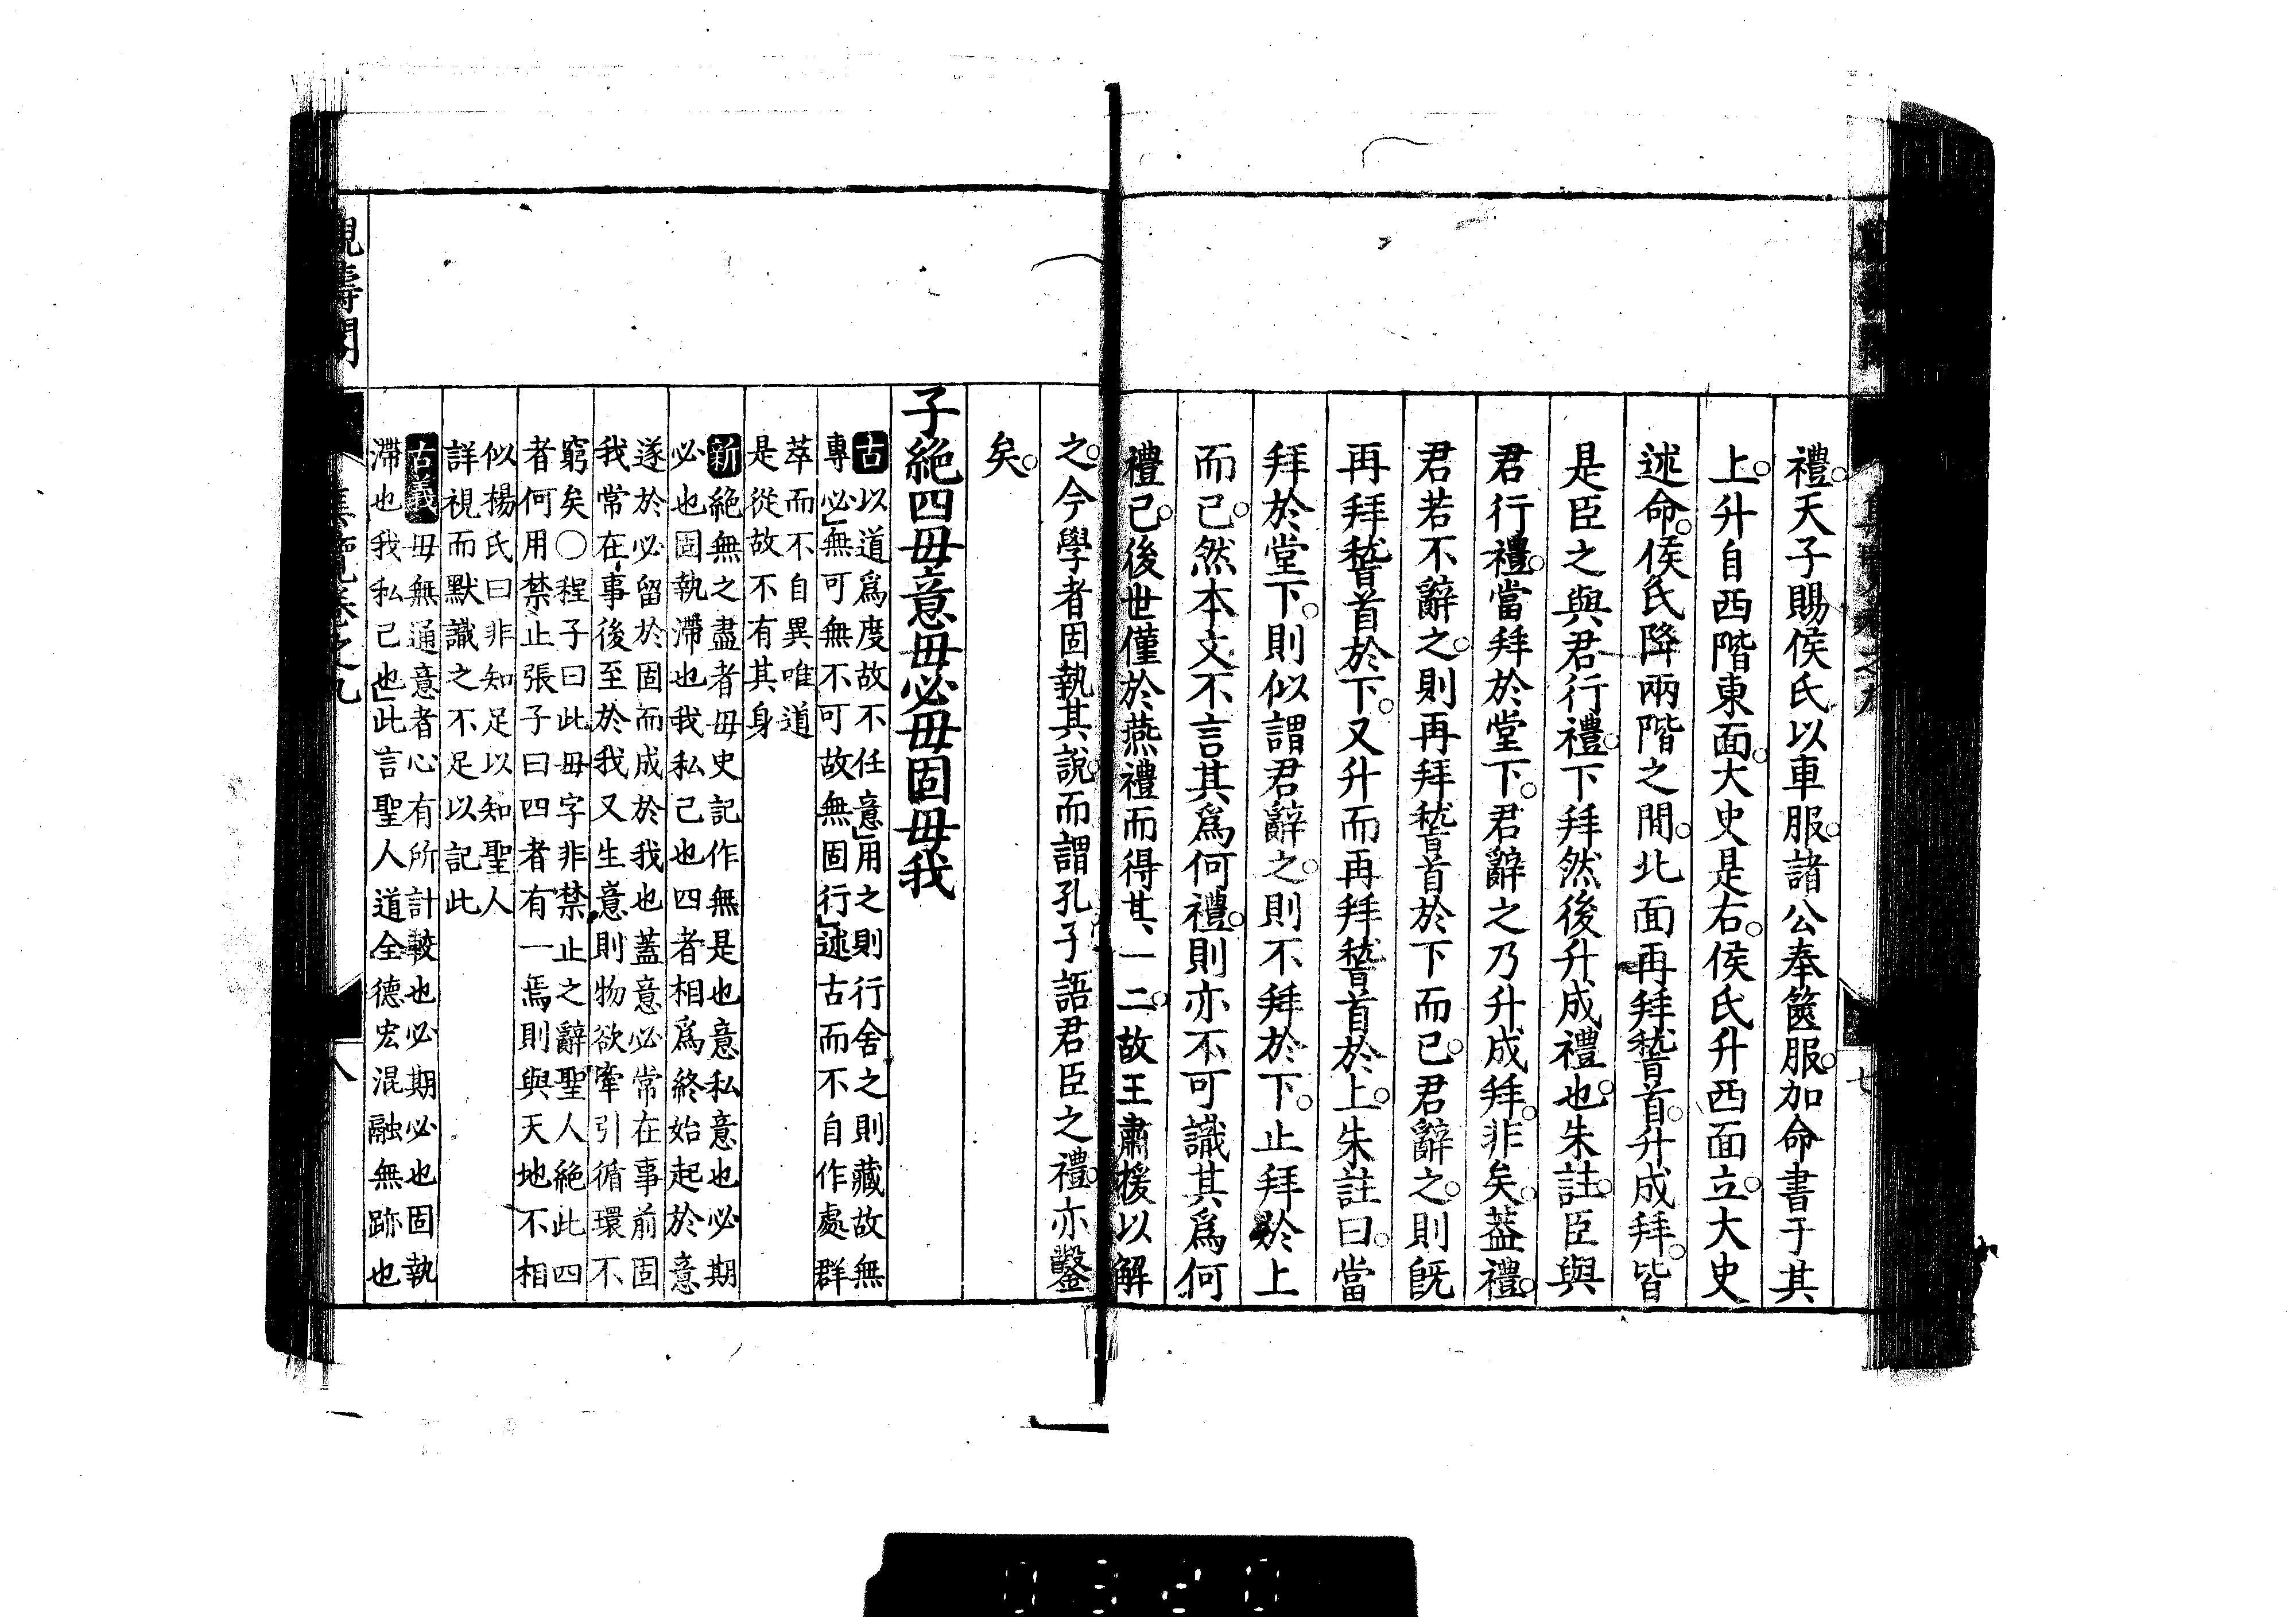 禮。天子賜侯氏以車服。諸公奉篋服。加命書于其
上。升自西階東面。大史是右。侯氏升西面立。大史
述命。侯氏降兩階之間。北面再拜稽首。升成拜。皆
是臣之與君行禮。下拜然後升成禮也。朱註。臣與
君行禮。當拜於堂下。君辭之乃升成拜。非矣。蓋禮。
君若不辭之。則再拜稽首於下而已。君辭之。則旣
再拜稽首於下。又升而再拜稽首於上。朱註曰。當
拜於堂下。則似謂君辭之。則不拜於下。止拜於上
而已。然本文不言其爲何禮。則亦不可識其爲何
禮已。後世僅於燕禮而得其一二。故王肅援以解
之。今學者固執其說。而謂孔子語君臣之禮。亦鑿
矣。
子絕四毋意毋必毋固毋我
古以道爲度故不任意」用之則行舍之則藏故無
專必」無可無不可故無固行」述古而不自作處群
萃而不自異唯道
是從故不有其身
新絕無之盡者毋史記作無是也意私意也必期
必也固執滯也我私己也四者相爲終始起於意
遂於必留於固而成於我也蓋意必常在事前固
我常在事後至於我又生意則物欲牽引循環不
窮矣〇程子曰此毋字非禁止之辭聖人絕此四
者何用禁止張子曰四者有一焉則與天地不相
似楊氏曰非知足以知聖人
詳視而默識之不足以記此
古義毋無通意者心有所計較也必期必也固執
滯也我私己也」此言聖人道全德宏混融無跡也
觀濤閣
集覽卷之九
八
0320